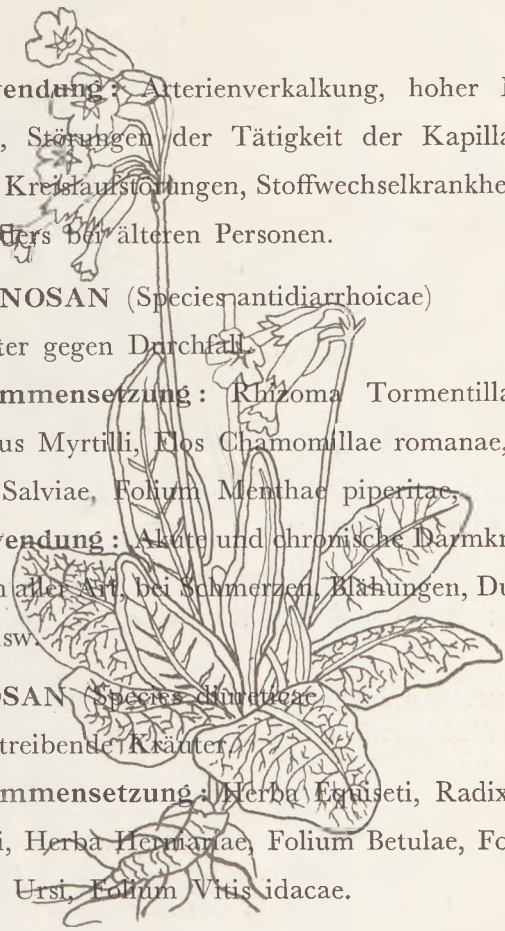 endung: Arterienverkalkung, hoher
, Störungen der Tätigkeit der Kapilla
Kreislaufstörungen, Stoffwechselkrankhe
ders bei älteren Personen.
NOSAN (Species antidiarrhoicae)
ter gegen Durchfall.
mmensetzung: Rhizoma Tormentilla
us Myrtilli, Flos Chamomillae romanae,
Salviae, Folium Menthae piperitae,
endung: Akute und chronische Darmkr
n aller Art, bei Schmerzen, Blähungen, Du
usw.
OSAN Species diureticae
treibende Kräuter.
mmensetzung: Herba Equiseti, Radix
i, Herba Herniariae, Folium Betulae, Fo
Ursi, Folium Vitis idacae.